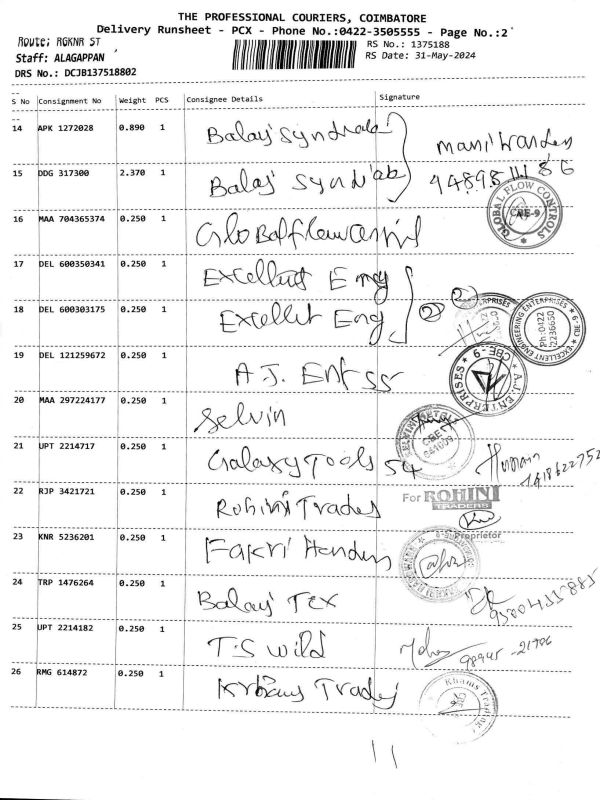 THE PROFESSIONAL COURIERS, COIMBATORE
Delivery Runsheet - PCX - Phone No.:0422-3505555 - Page No.:2
Route; RGKNR ST
RS No.: 1375188
Staff: ALAGAPPAN
RS Date: 31-May-2024
DRS No.: DCJB137518802
S No Consignment No Weight PCS Consignee Details Signature
14 APK 1272028 0.890 1 Balaji
15 DDG 317300 2.370 1 Balaji
GLOBAL FLOW CONTROLS CBE-9
16 MAA 704365374 0.250 1
17 DEL 600350341 0.250 1 Excellent
18 DEL 600303175 0.250 1 Excellent Eng
EXCELLENT ENGINEERING ENTERPRISES CBE-9 Ph:0422 2236650
19 DEL 121259672 0.250 1 A.J. Ent
A.J. ENTERPRISES CBE-9
20 MAA 297224177 0.250 1 Selvin
21 UPT 2214717 0.250 1 Galaxy Tools 54
22 RJP 3421721 0.250 1 Rohini Trades
For ROHINI TRADERS
Proprietor
23 KNR 5236201 0.250 1 Fakri
24 TRP 1476264 0.250 1 Balaji Tex
25 UPT 2214182 0.250 1 T.S Wild
26 RMG 614872 0.250 1
11